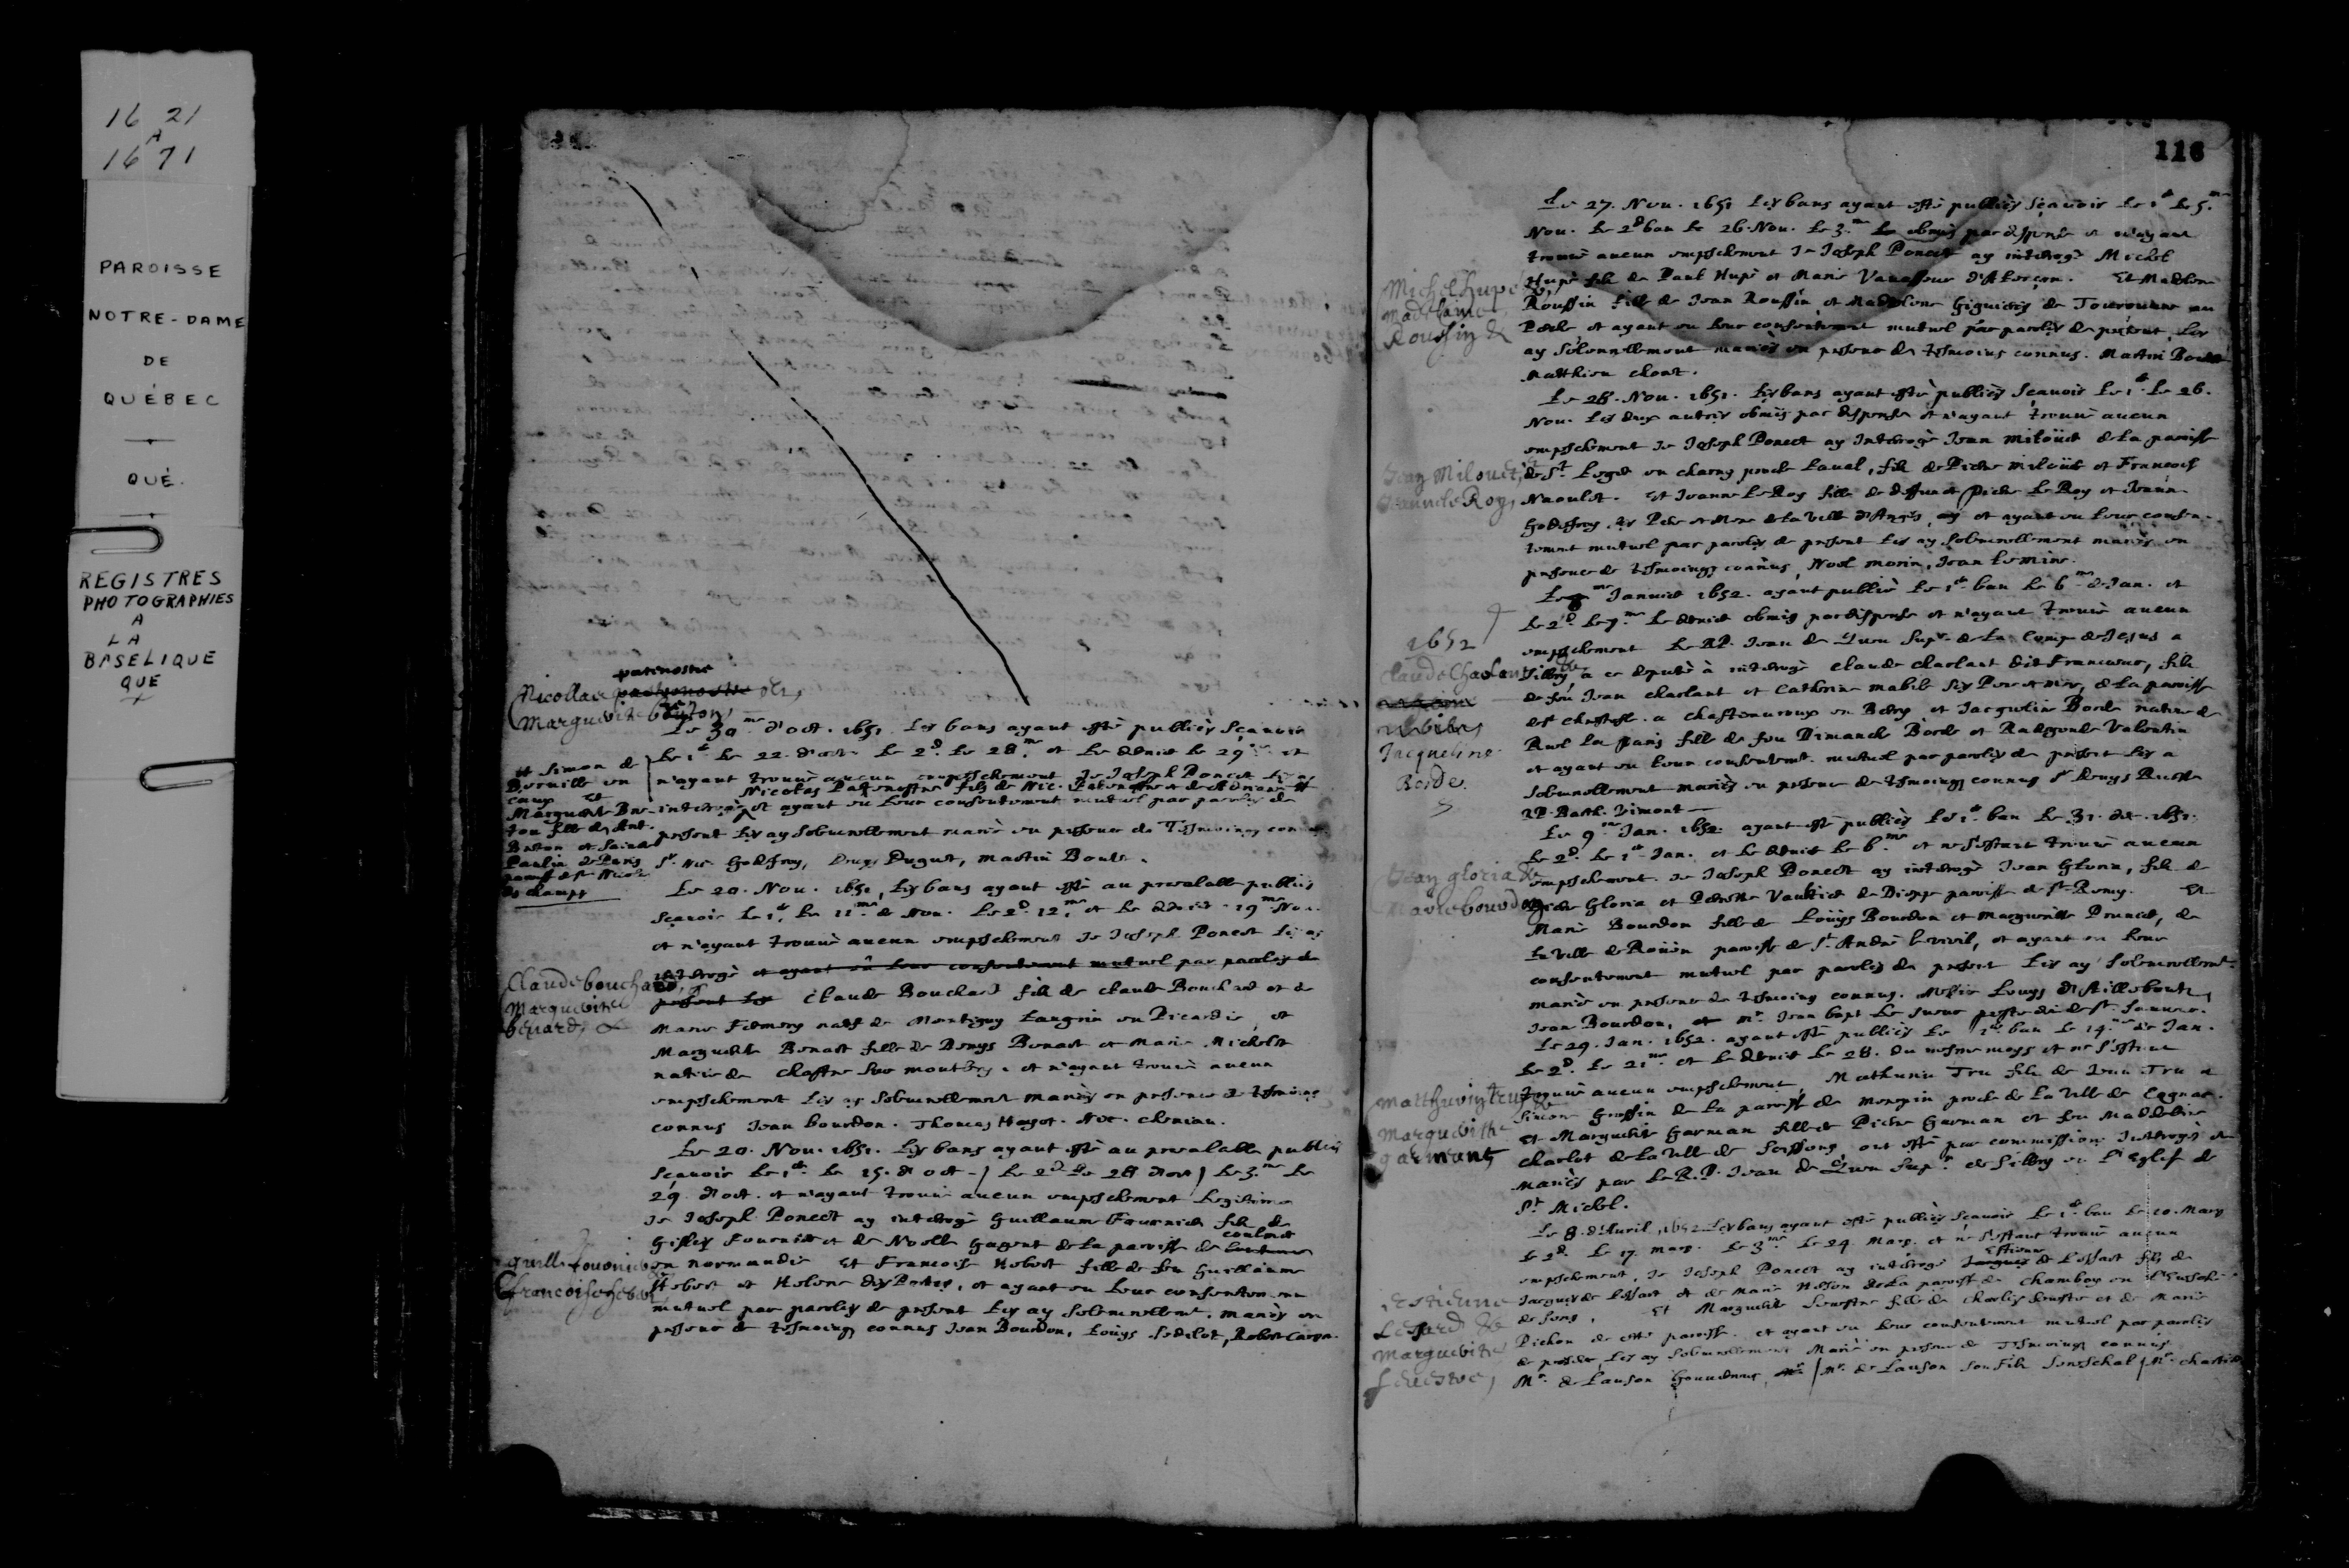 16 21
A
16 71
PAROISSE
NOTRE-DAME
DE
QUÉBEC
QUÉ.
REGISTRES
PHOTOGRAPHIES
A
LA
BASELIQUE
QUE
patenostre
Nicollas
Marguerite
Le 30.me d'oct. 1651. Les bans ayant esté publiés sçavoir
Le 1.er Le 22. d'oct. Le 2.d Le 28.me et Le dernier Le 29.me et
n'ayant trouvé aucun empeschement Je Joseph Poncet
Nicolas Patenostre fils de Nic. Patenostre
interrogé et ayant eu leur consentement mutuel par paroles de
present Les ay solemnellement marié en presence de Tesmoins
Godefroy, Duquet, Martin Boutt.
et Simon de
Berville en
caux Et
Marguerite Bre-
ton fille de Ant.
Breton et
de Paris
paroisse de St Nicolas
des champs
Le 20. Nov. 1651, Les bans ayant esté au prealable publiés
Sçavoir Le 1.er Le 11.me de Nov. Le 2.d 12.me et Le dernier 19.me Nov.
et n'ayant trouvé aucun empeschement Je Joseph Poncet
interrogé et ayant eû leur consentement mutuel par paroles de
present Les Claude Bouchard fils de Claude Bouchard et de
Marie natif de Montigny en Picardie, et
Marguerite Benart fille de Denys Benart et Marie Michelet
native de et n'ayant trouvé aucun
empeschement Les ay solemnellement mariés en presence de tesmoins
connus Jean bourdon. Thomas Hayot.
Claude bouchard,
Marguerite
benard, &
Le 20. Nov. 1651. Les bans ayant esté au prealable publiés
Sçavoir Le 1.er Le 15. d'oct. Le 2.d Le 28 d'oct Le 3.me Le
29 d'oct. et n'ayant trouvé aucun empeschement Legitime
Je Joseph Poncet ay interrogé Guillaume Fournier fils de
Gilles Fournier et de Noelle Gagent de la paroisse de
en normandie Et Francoise Hebert fille de feu Guillaume
Hebert et Helene des Portes, et ayant eu leur consentement
mutuel par paroles de present Les ay solemnellement mariés en
presence de tesmoings connus Jean Bourdon, Louys Sedilot, Robert Caron.
guill. fournier
francoise hebert
116
Le 27. Nov. 1651 Les bans ayant esté publiés sçavoir Le 1.er Le 5.me
Nov. Le 2.d ban Le 26. Nov. Le 3.me obmis par dispense et n'ayant
trouvé aucun empeschement Je Joseph Poncet ay interrogé Michel
Hupé fils de Paul Hupé et Marie Vavasseur d'Alençon. Et Madelene
Roussin fille de Jean Roussin et Madelene Giguiere de Tourouvre au
Perche et ayant eu leur consentement mutuel par paroles de present, Les
ay solemnellement mariés en presence de tesmoins connus. Martin Boutt
Matthieu choart.
Michel hupé &
Madelaine
Roussin &
Le 28. Nov. 1651. Les bans ayant esté publiés sçavoir Le 1.er Le 26.
Nov. Les deux autres obmis par dispense et n'ayant trouvé aucun
empeschement Je Joseph Poncet ay interrogé Jean Milouet de La paroisse
de St Leger en charny proche Laval, fils de Pierre Milouet et Francoise
Naoulet. Et Jeanne Le Roy fille de deffunct Pierre Le Roy et Jeanne
Godefroy, ses Pere et Mere de La ville d'Angers, ay et ayant eu leur consen-
tement mutuel par paroles de present Les ay solemnellement mariés en
presence de tesmoings connus, Noel morin, Jean Lemire.
Jean Milouet,
Jeanne le Roy,
Le 8.me Januier 1652. ayant publié Le 1.er ban Le 6.me de Jan. et
Le 2.d Le 7.me Le dernier obmis par dispense et n'ayant trouvé aucun
empeschement Le RP. Jean de Quen Supr. de La Comp. de Jesus a
Sillery, a ce deputé à interrogé Claude Charlant dit Francoeur, fils
de feu Jean Charlant et Catherine Mabile ses Pere et mere, de La paroisse
de St Christofle a Chasteauroux en Berry et Jacqueline Borde native de
Ruel Les Paris fille de feu Dimanche Borde et Radegonde Valentin
et ayant eu leur consentemt. mutuel par paroles de present Les a
solemnellement mariés en presence de tesmoings connus
RP. Barth. Vimont
1652
Claude Charlant &
Jacqueline
Borde.
Le 9.me Jan. 1652. ayant esté publiés Le 1.er ban Le 31. dec. 1651.
Le 2.d Le 1.er Jan. et Le dernier Le 6.me et ne s'estant trouvé aucun
empeschement. Je Joseph Poncet ay interrogé Jean Gloria, fils de
Pierre Gloria et Perette Vaultier de Dieppe paroisse de St Remy. Et
Marie Bourdon fille de Louys Bourdon et Marguerite Prunier, de
La Ville de Rouen paroisse de St André la ville, et ayant eu leur
consentement mutuel par paroles de present Les ay solemnellemt.
mariés en presence de tesmoins connus. Messire Louys D'Ailleboust,
Jean Bourdon, et Mr. Jean bapt Le Sueur prestre dit de St Sauveur.
Jean gloria &
Marie bourdon
Le 29. Jan. 1652. ayant esté publiés Le 1.er ban Le 14.me de Jan.
Le 2.d Le 21.me et Le dernier Le 28. du mesme moys et ne s'estant
trouvé aucun empeschement, Mathurin Tru fils de Jean Tru et
Simone Grossin de La paroisse de proche de La Ville de Cognac.
Et Marguerite Garman fille de Pierre Garman et feu Madeleine
Charlot de La Ville de Soissons, ont esté par commission interrogés et
mariés par Le R.P. Jean de Quen Sup.r de Sillery en L'Eglise de
St Michel.
Matthurin tru &
Marguerithe
garmant
Le 8. d'Avril, 1652 Les bans ayant esté publiés sçavoir Le 1.er ban Le 10. Mars
Le 2.d Le 17. mars. Le 3.me Le 24 Mars. et ne s'estant trouvé aucun
empeschement, Je Joseph Poncet ay interrogé Jacques Estienne de Lessart fils de
Jacques de Lessart et de Marie Herson de La paroisse de Chamboy en
de Sens, Et Marguerite Sevestre fille de Charles Sevestre et de Marie
Pichon de cette paroisse. et ayant eu leur consentement mutuel par paroles
de present, Les ay solemnellement Marié en presence de Tesmoings connus
Mr. de Lauson Gouverneur, Mr. de Lauson son Fils Seneschal Mr.
Estienne
Lesard &
Marguerite
sevestre,